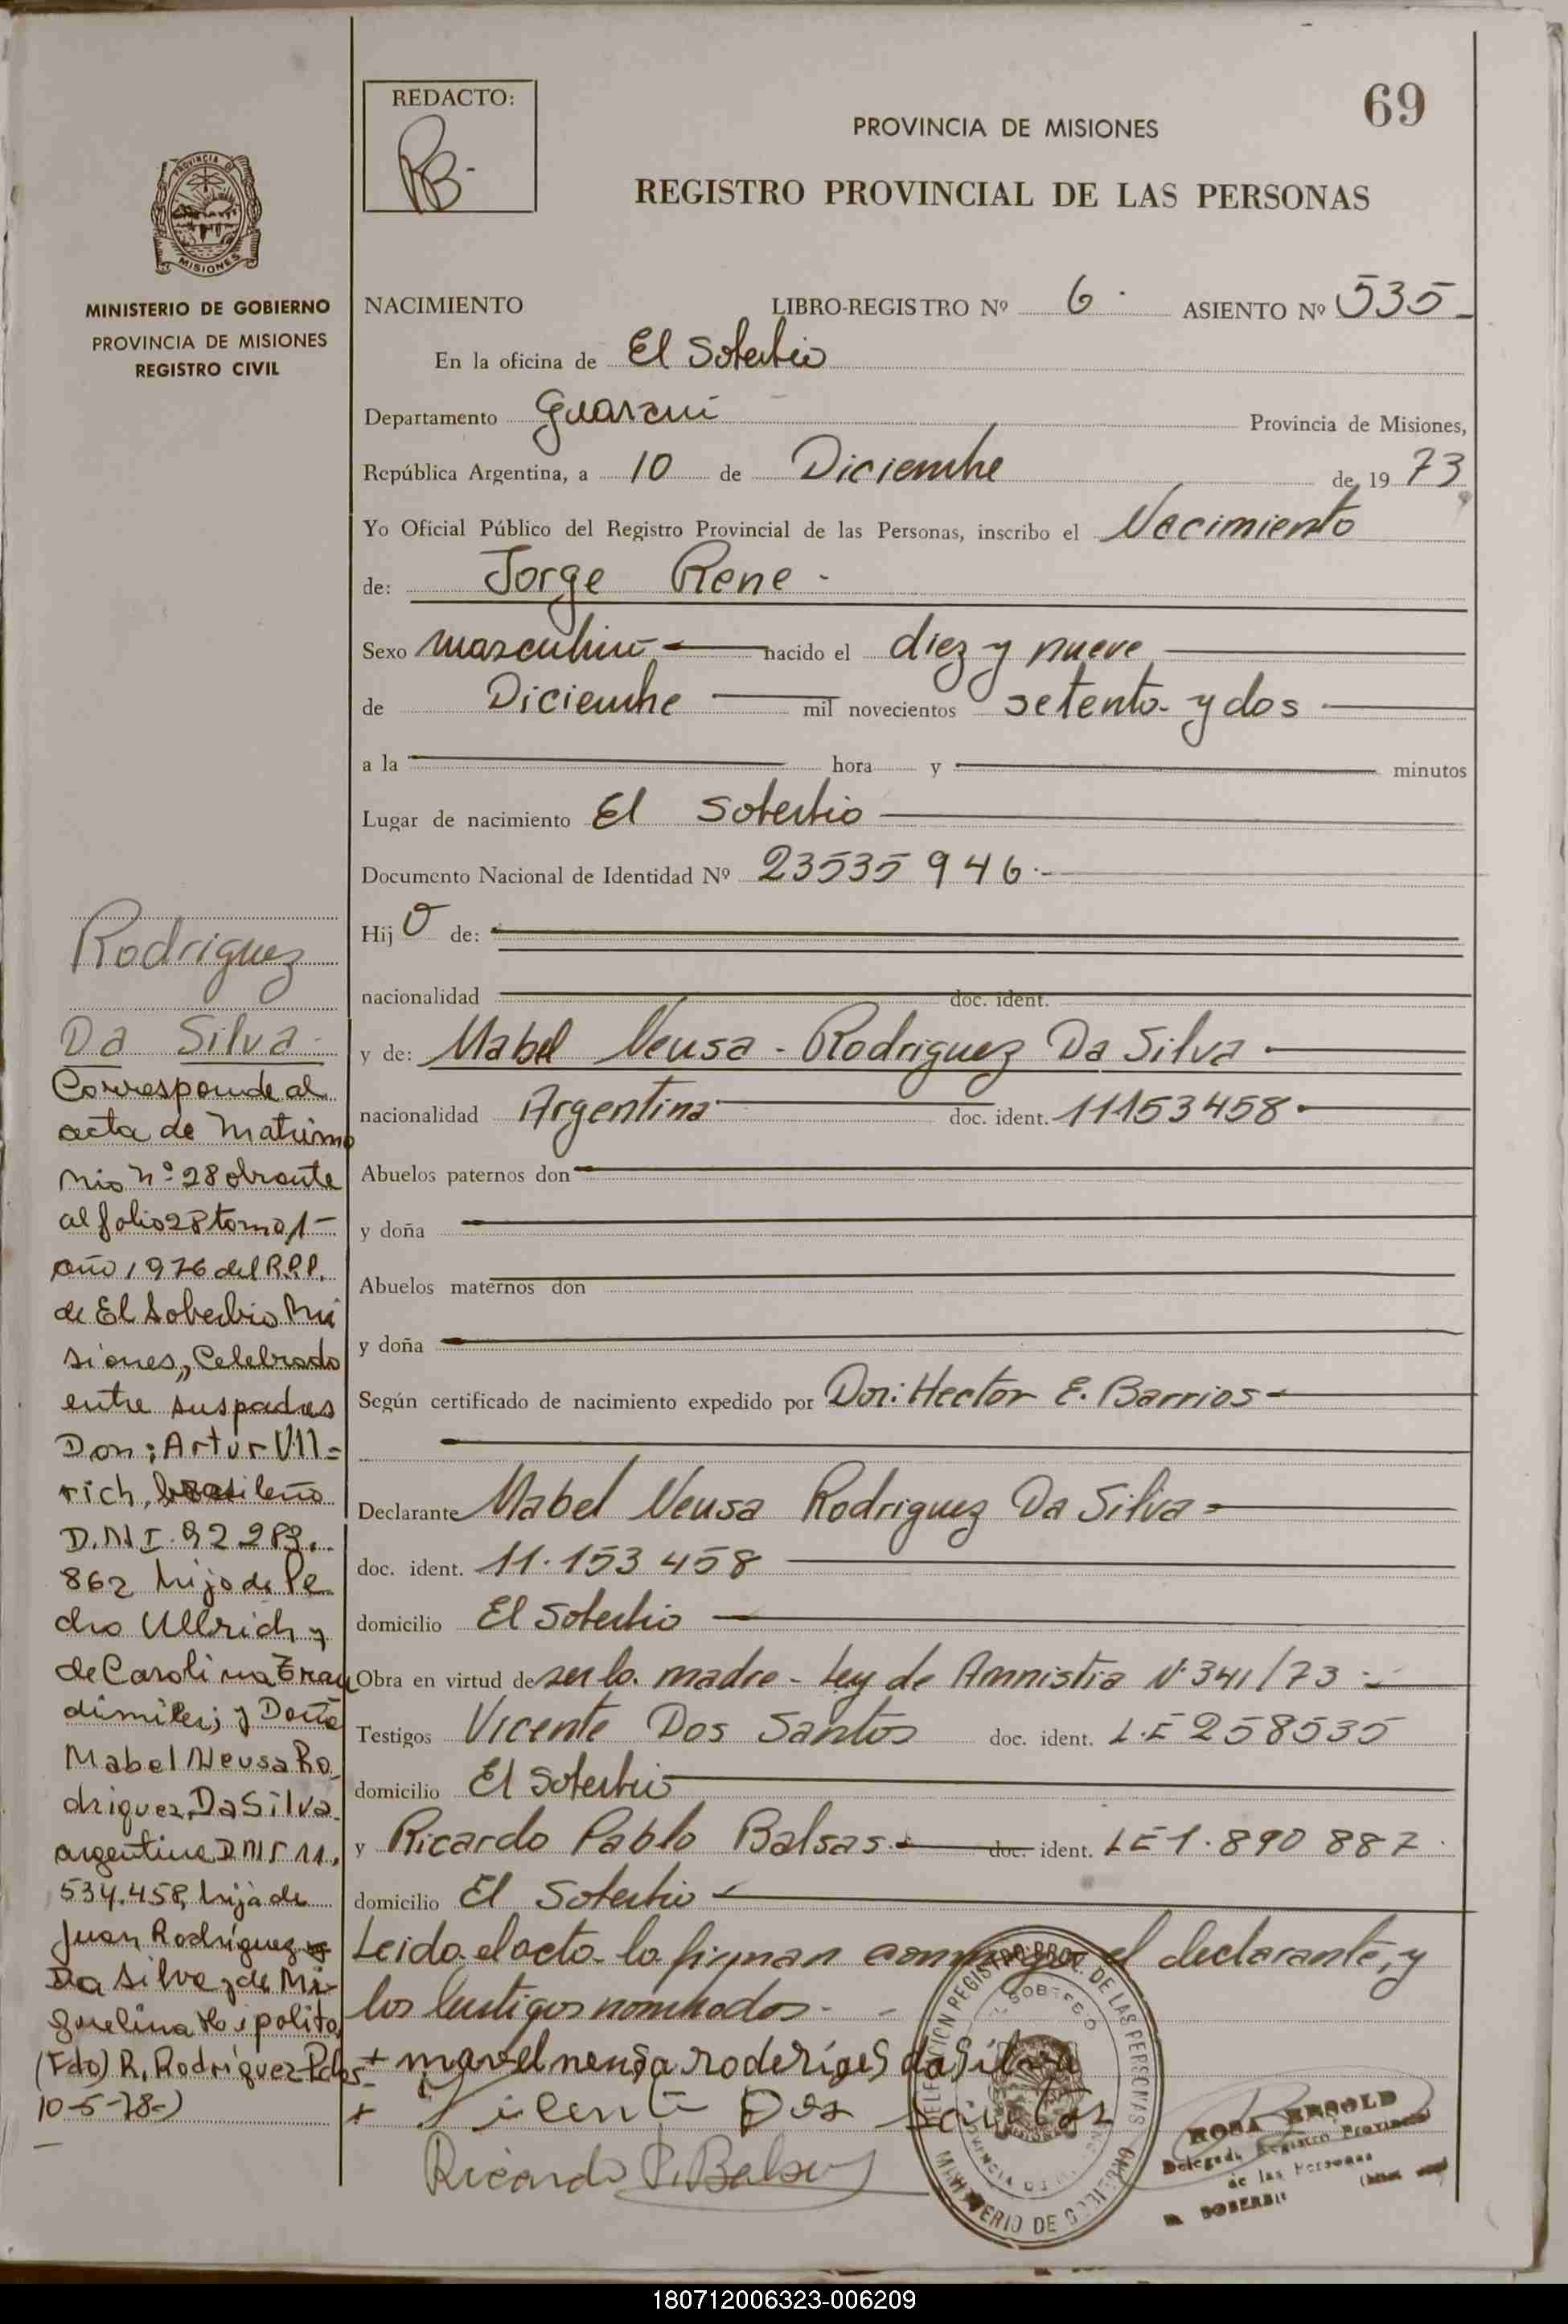 69
REDACTO:
RB-
PROVINCIA DE MISIONES
REGISTRO PROVINCIAL DE LAS PERSONAS
PROVINCIA DE
MISIONES
MINISTERIO DE GOBIERNO
PROVINCIA DE MISIONES
REGISTRO CIVIL
NACIMIENTO LIBRO-REGISTRO Nº 6 ASIENTO Nº 535
En la oficina de El Soberbio
Departamento Guarani Provincia de Misiones,
República Argentina, a 10 de Diciembre de 19 73
Yo Oficial Público del Registro Provincial de las Personas, inscribo el Nacimiento
de: Jorge Rene -
Sexo masculino nacido el diez y nueve
de Diciembre mil novecientos setenta y dos
a la hora y minutos
Lugar de nacimiento El Soberbio
Documento Nacional de Identidad Nº 23535946
Hij o de:
nacionalidad doc. ident.
y de: Mabel Neusa - Rodriguez Da Silva
nacionalidad Argentina doc. ident. 11153458
Abuelos paternos don
y doña
Abuelos maternos don
y doña
Según certificado de nacimiento expedido por Dor: Hector E. Barrios
Declarante Mabel Neusa Rodriguez Da Silva
doc. ident. 11.153 458
domicilio El Soberbio
Obra en virtud de ser la madre - Ley de Amnistia Nº 341/73
Testigos Vicente Dos Santos doc. ident. L.E 258535
domicilio El Soberbio
y Ricardo Pablo Balsas doc. ident. LE 1.890 887
domicilio El Soberbio
Leida el acta la firman conmigo el declarante, y
los testigos nombrados
+ mavel neusa roderiges da Silva
+ Vicente Dos Santos
Ricardo P. Balsas
Rodriguez
Da Silva
Corresponde al
acta de Matrimo
nio nº 28 obrante
al folio 28 tomo 1-
año 1976 del R.P.P.
de El Soberbio Mi
siones,, Celebrado
entre sus padres
Don: Artur Ull=
rich, brasileño
D.N.I. 92 283.
862 hijo de Pe
dro Ullrich y
de Carolina
y Doña
Mabel Neusa Ro
driguez Da Silva
argentina DNI 11.
534.458, hija de
Juan Rodríguez
Da Silva y de Mi
guelina Hipolito
(Fdo) R. Rodríguez
10-5-78-)
DELEGACION REGISTRO PROV. DE LAS PERSONAS
EL SOBERBIO
PROVINCIA DE MISIONES
MINISTERIO DE GOBIERNO
ROSA
Delegada Registro Provincial
de las Personas
EL SOBERBIO
180712006323-006209